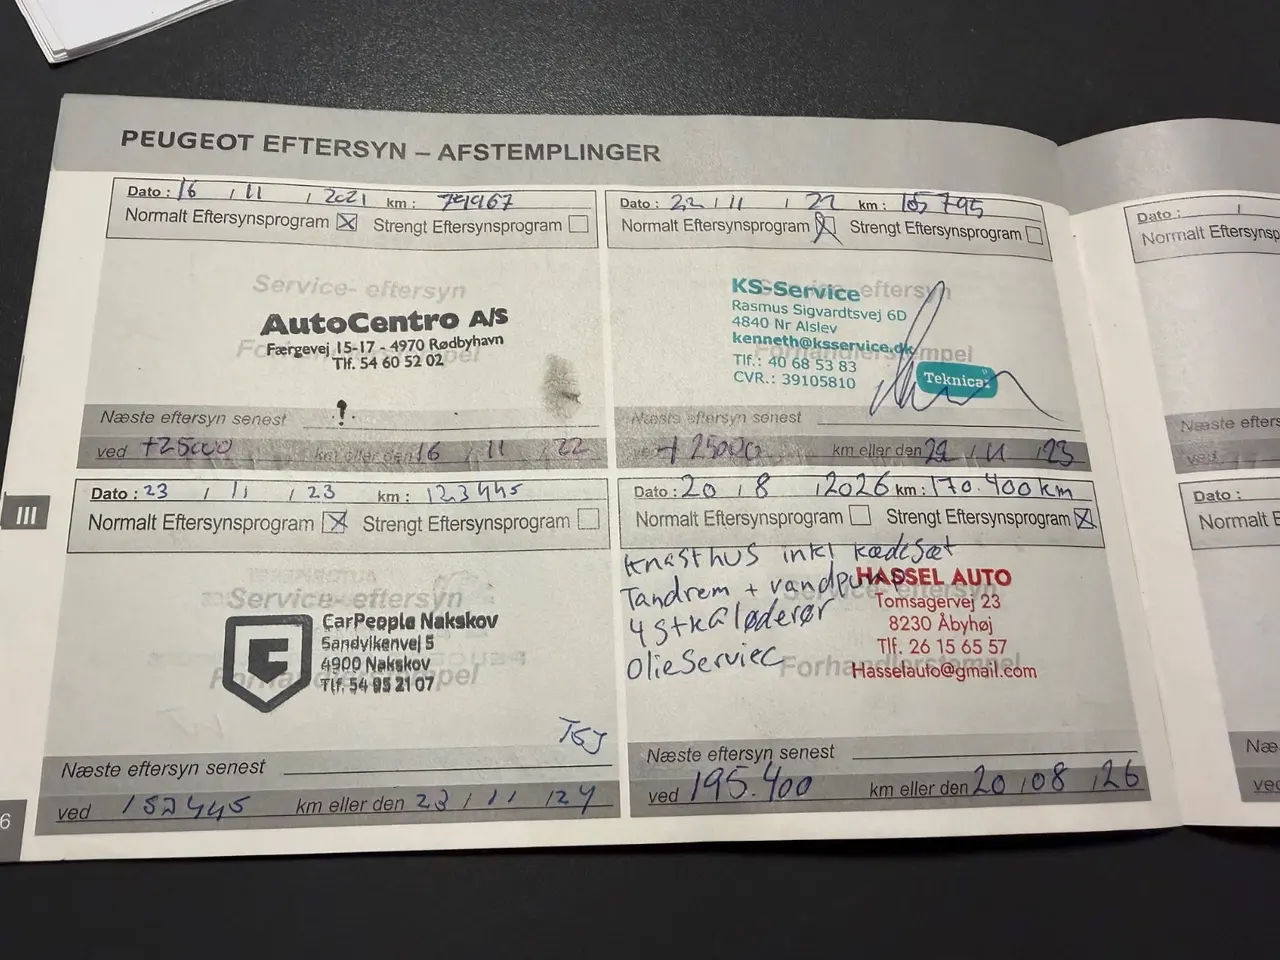 PEUGEOT EFTERSYN – AFSTEMPLINGER
Dato : 16 / 11 / 2021 km : 79967
Normalt Eftersynsprogram ☒ Strengt Eftersynsprogram ☐
Service- eftersyn
AutoCentro A/S
Færgevej 15-17 - 4970 Rødbyhavn
Tlf. 54 60 52 02
Næste eftersyn senest
ved +25000 km eller den 16 / 11 / 22
Dato : 22 / 11 / 22 km : 105 795
Normalt Eftersynsprogram ☒ Strengt Eftersynsprogram ☐
KS-Service eftersyn
Rasmus Sigvardtsvej 6D
4840 Nr Alslev
kenneth@ksservice.dk
Forhandlerstempel
Tlf.: 40 68 53 83
CVR.: 39105810
Teknicar
Næste eftersyn senest
ved + 25000 km eller den 22 / 11 / 23
III
Dato : 23 / 11 / 23 km : 123445
Normalt Eftersynsprogram ☒ Strengt Eftersynsprogram ☐
Service- eftersyn
CarPeople Nakskov
Sandvikenvej 5
4900 Nakskov
Tlf. 54 95 21 07
Næste eftersyn senest
ved 152445 km eller den 23 / 11 / 24
Dato : 20 / 8 / 2026 km : 170.400 km
Normalt Eftersynsprogram ☐ Strengt Eftersynsprogram ☒
Knasthus inkl kædesæt
Tandrem + vandpumpe
4 stk gløderør
olieserviec
HASSEL AUTO
Tomsagervej 23
8230 Åbyhøj
Tlf. 26 15 65 57
Forhandlerstempel
Hasselauto@gmail.com
Næste eftersyn senest
ved 195.400 km eller den 20 / 08 / 26
6
Dato : /
Normalt Eftersynsp
Næste efters
ved
Dato :
Normalt E
Næ
ved